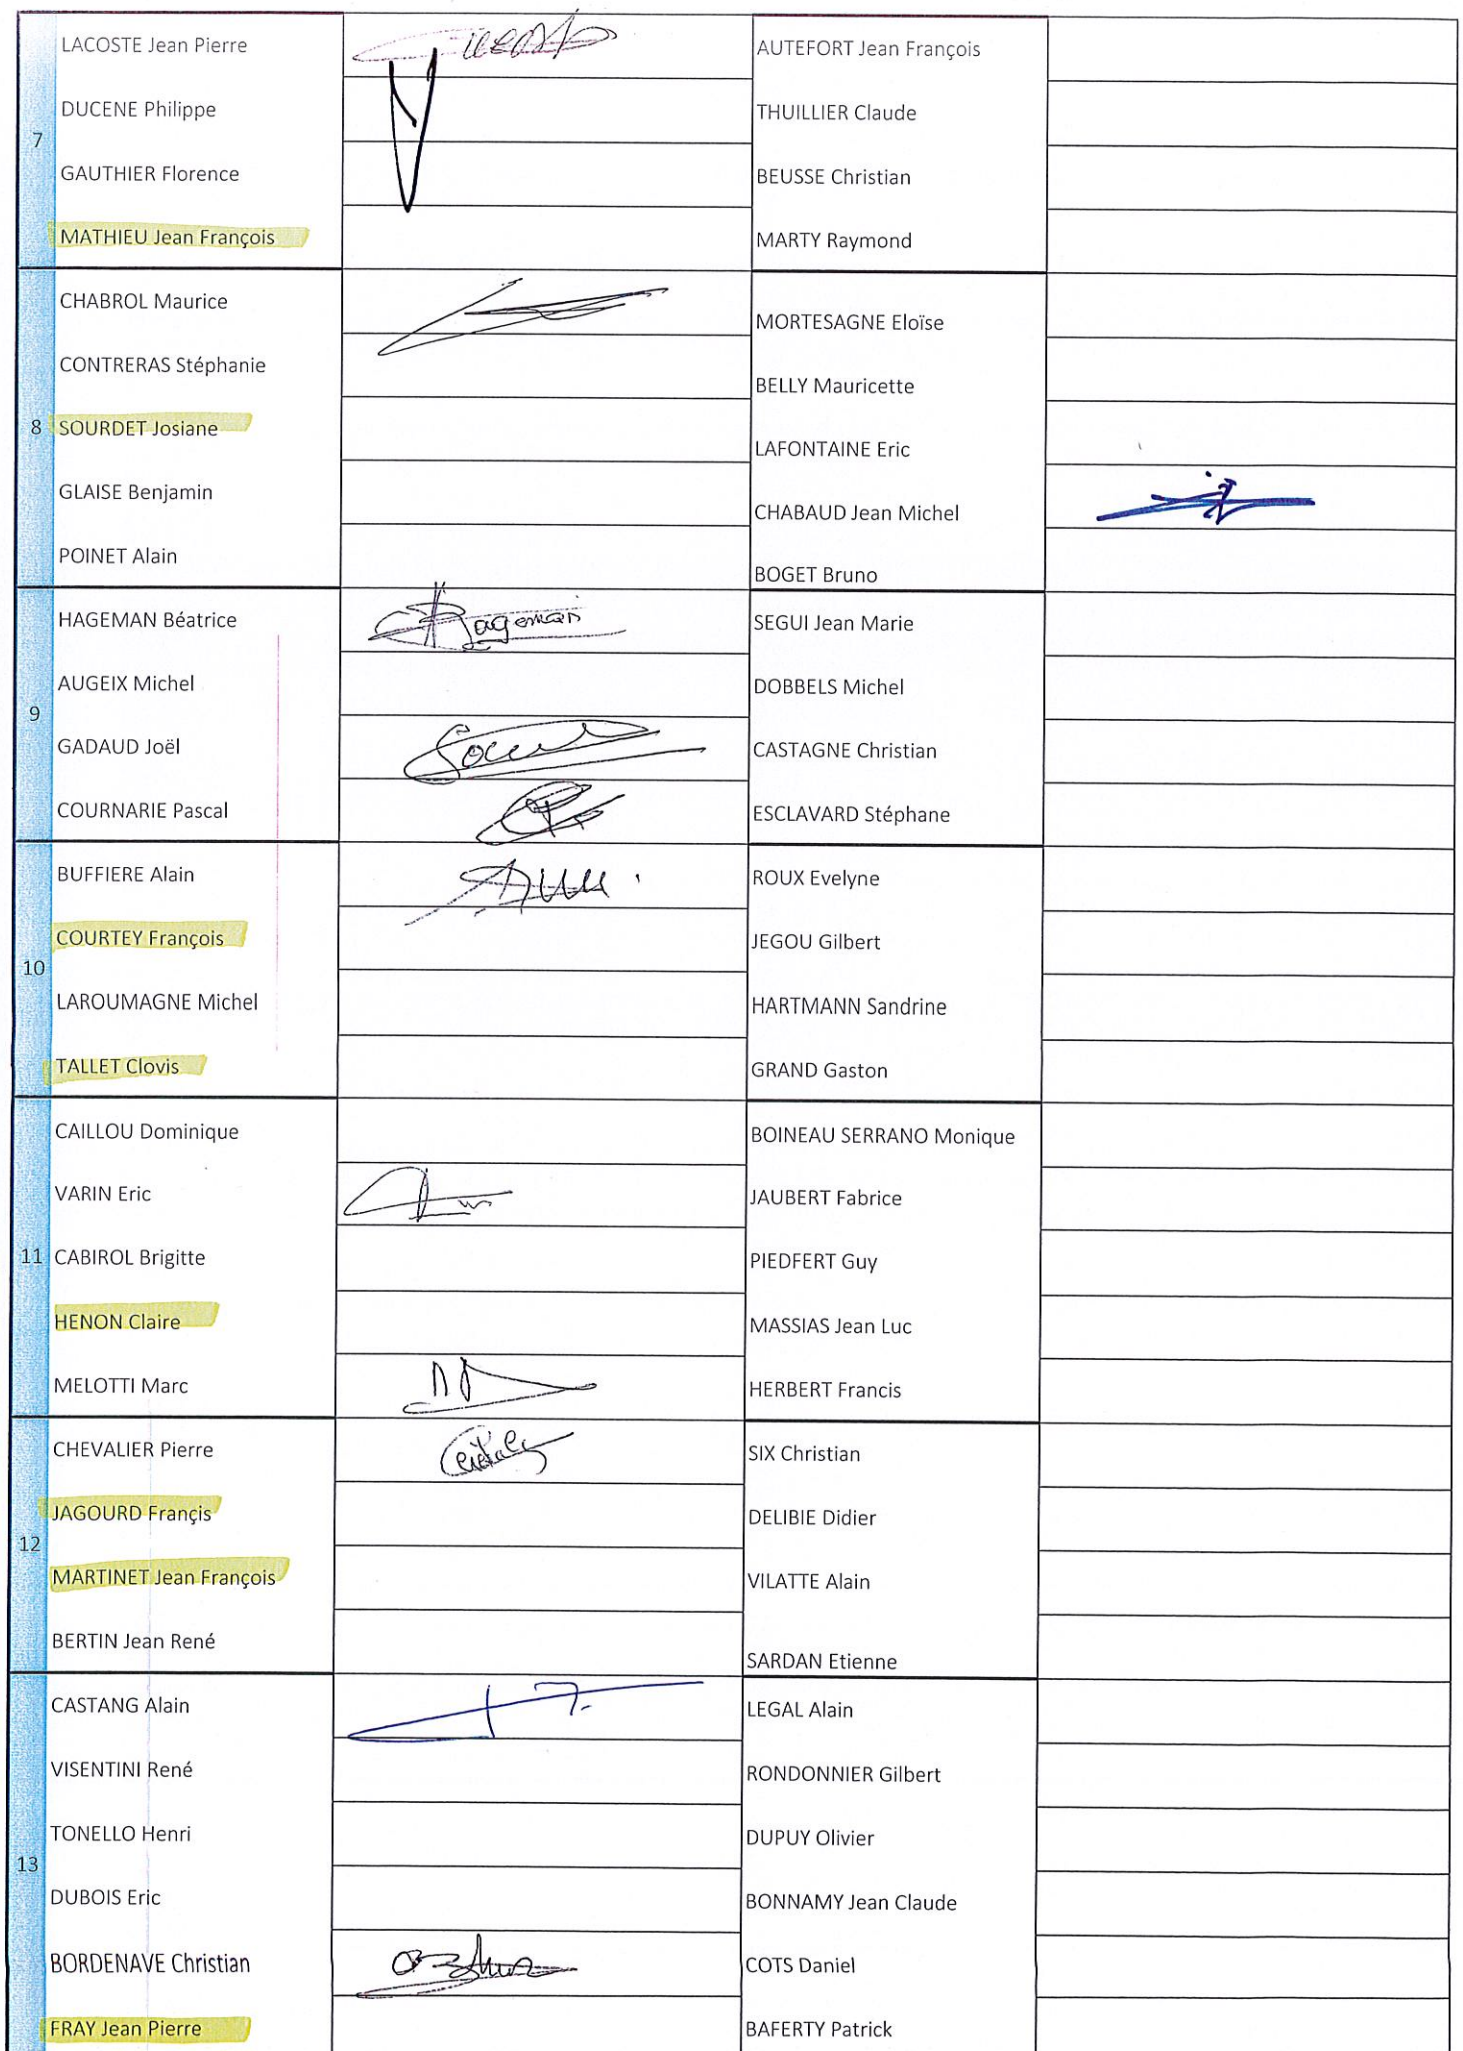 LACOSTE Jean Pierre AUTEFORT Jean François
DUCENE Philippe THUILLIER Claude
7
GAUTHIER Florence BEUSSE Christian
MATHIEU Jean François MARTY Raymond
CHABROL Maurice MORTESAGNE Eloïse
CONTRERAS Stéphanie BELLY Mauricette
8 SOURDET Josiane LAFONTAINE Eric
GLAISE Benjamin CHABAUD Jean Michel
POINET Alain BOGET Bruno
HAGEMAN Béatrice Hageman SEGUI Jean Marie
AUGEIX Michel DOBBELS Michel
9
GADAUD Joël CASTAGNE Christian
COURNARIE Pascal ESCLAVARD Stéphane
BUFFIERE Alain ROUX Evelyne
COURTEY François JEGOU Gilbert
10
LAROUMAGNE Michel HARTMANN Sandrine
TALLET Clovis GRAND Gaston
CAILLOU Dominique BOINEAU SERRANO Monique
VARIN Eric JAUBERT Fabrice
11 CABIROL Brigitte PIEDFERT Guy
HENON Claire MASSIAS Jean Luc
MELOTTI Marc HERBERT Francis
CHEVALIER Pierre SIX Christian
JAGOURD Françis DELIBIE Didier
12
MARTINET Jean François VILATTE Alain
BERTIN Jean René SARDAN Etienne
CASTANG Alain LEGAL Alain
VISENTINI René RONDONNIER Gilbert
TONELLO Henri DUPUY Olivier
13
DUBOIS Eric BONNAMY Jean Claude
BORDENAVE Christian COTS Daniel
FRAY Jean Pierre BAFERTY Patrick